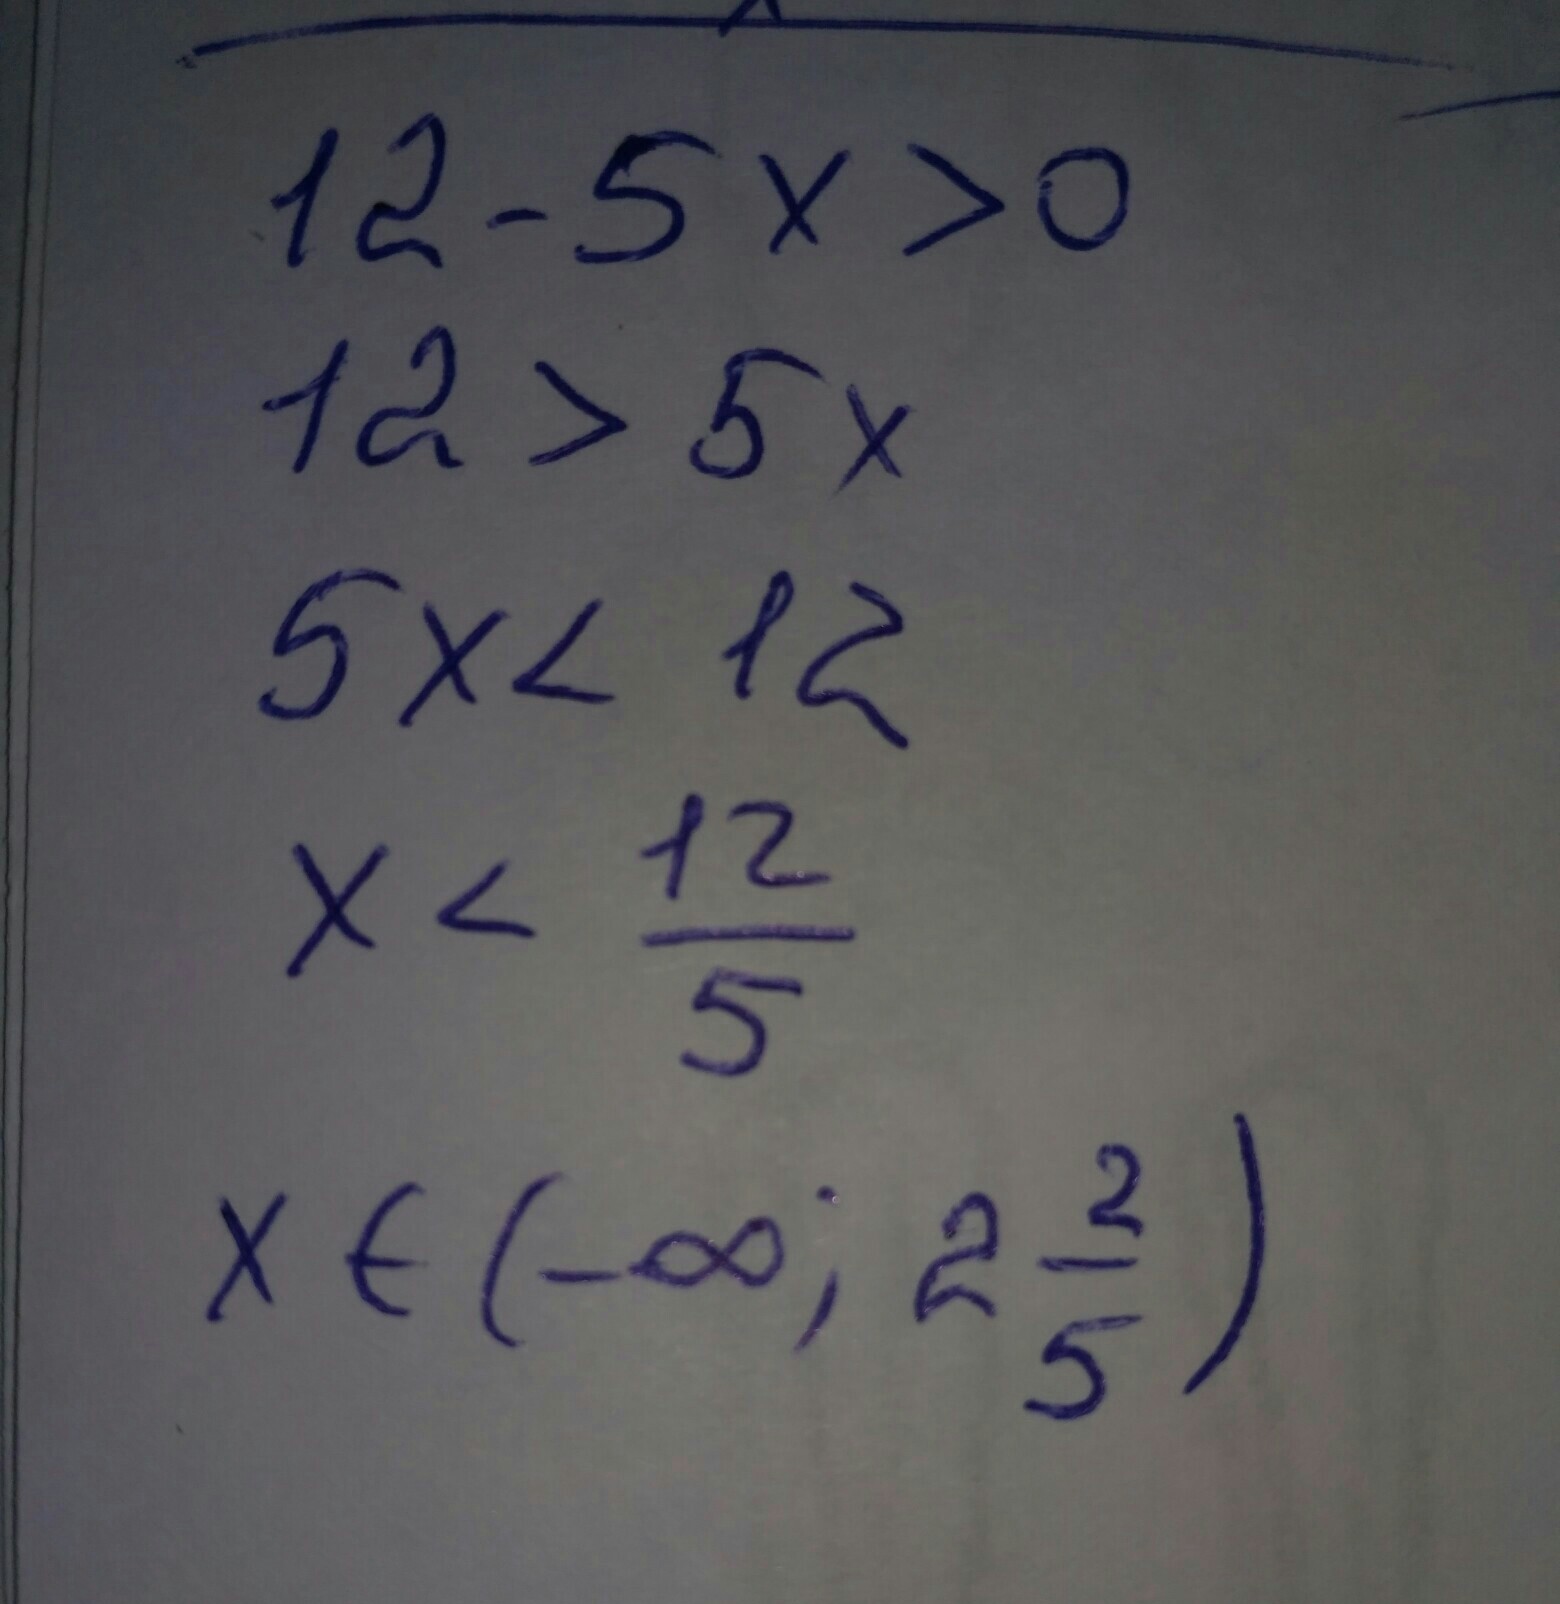 12-5x>0
12>5x
5x<12
x<12/5
x∈(-∞; 2 2/5)